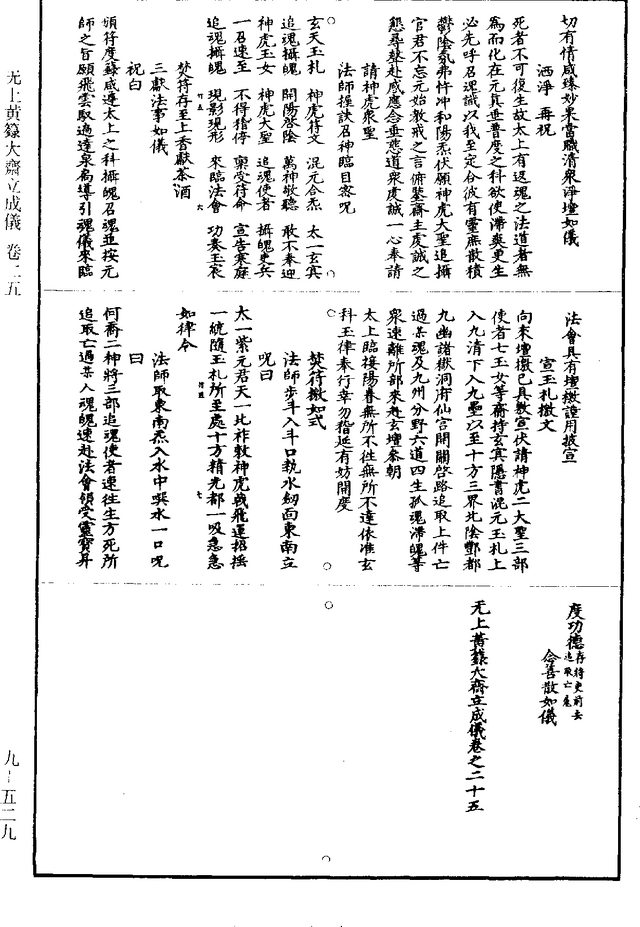 切有情咸臻妙果當職清衆淨壇如儀
洒淨　再祝
死者不可復生故太上有返魂之法道者無
為而化在元真垂普度之科欲使滯爽更生
必先呼召謹誠以我至定合彼有靈庶散積
鬱陰氛弗忤冲和陽炁伏願神虎大聖追攝
官君不忘元始教戒之言俯鑒齋主度誠之
懇尋聲赴感應念垂慈道衆虔誠一心奉請
請神虎衆聖
法師握訣召神臨目密呪
玄天玉札　神虎符文　混元合炁　太一玄賓
追魂攝魄　開陽啓陰　萬神敬聽　敢不奉迎
神虎玉女　神虎大聖　追魂使者　攝魄吏兵
一召速至　不得稽停　稟受符命　宣告寒庭
追魂攝魄　現影現形　來臨法會　功奏玉宸
焚符存至上香獻茶酒
三獻法事如儀
祝曰
頒符度籙咸遵太上之科攝魄召魂並按元
師之旨願飛雲馭遍達泉扃導引魂儀來臨
法會具有壇檄謹用披宣
宣玉札檄文
向來壇檄已具敷宣伏請神虎二大聖三部
使者七玉女等齎持玄賓隱書混元玉札上
入九清下入九壘以至十方三界北陰酆都
九幽諸獄洞府仙宮開關啓路追取上件亡
過某魂及九州分野六道四生孤魂滯魄等
衆速離所部來赴玄壇參朝
太上臨接陽眷無所不徃無所不達依准玄
科玉律奉行幸勿稽延有妨開度
焚符檄如式
法師步斗入斗口執水劒面東南立
呪曰
太一紫元君天一北祚敕神虎戟飛運招摇
一統隨玉札所至處十方精光都一吸急急
如律令
法師取東南炁入水中噀水一口呪
曰
何喬二神將三部追魂使者速徃生方死所
追取亡過某人魂魄速赴法會領受靈寶昇
度功德存將吏前去追取亡魂
念善散如儀
无上黃籙大齋立成儀卷之二十五
无上黄籙大齋立成儀　卷二五
九—五二九